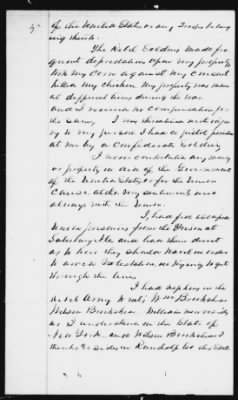 5
of the United States or any
The Rebel Soldiers made fre
quent depredation upon my property
took my corn against my consent
killed my chickens. My property was mor
at different times during the war
and I received no compensation for
the same, I was threatened with injury
to my person I had a pistol
at me by a Confederate Soldier
I never contributed any money
or property in aid of the Government
of the United States or for the Union
Cause although my sentiments were
always with the Union.
I had fed escaped
Union prisoners from the Prison at
Salisbury N.C. and told them
as to how they should travel in order
to avoid as trying to get
through the lines.
I had nephews in the
rebel Army to wit; Wm Brookshire
Nelson Brookshire, William now resides
as I understand in the State of
New York and Nelson Brookshire I
think resides in Randolph Co. this State